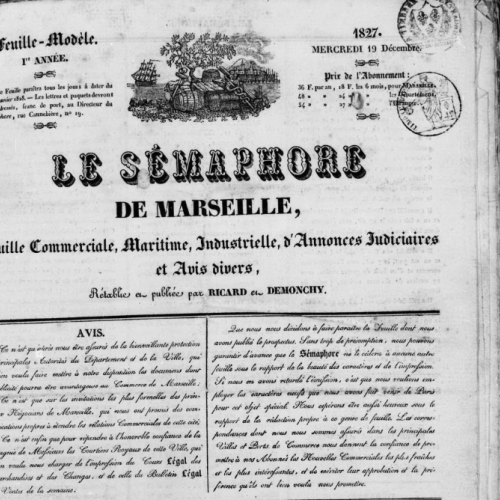 Feuille-Modèle.
1827.
Iʳᵉ ANNÉE.
MERCREDI 19 Décembre.
Feuille paraîtra tous les jours à dater du
1828. — Les lettres et paquets devront
franc de port, au Directeur du
rue Cannebière, nº 19.
Prix de l'Abonnement :
36 F. par an, 18 F. les 6 mois, pour MARSEILLE.
48 » 24 » le Département.
54 » 27 » l'Étranger.
LE SÉMAPHORE
DE MARSEILLE,
Feuille Commerciale, Maritime, Industrielle, d'Annonces Judiciaires
et Avis divers,
Rétablie et publiée par RICARD et DEMONCHY.
AVIS.
Ce n'est qu'après nous être assurés de la bienveillante protection
principales Autorités du Département et de la Ville, qui
bien voulu faire mettre à notre disposition les documens dont
publicité pourra être avantageuse au Commerce de Marseille.
Ce n'est que sur les invitations les plus formelles des prin-
Négocians de Marseille, qui nous ont promis des com-
propres à étendre les relations Commerciales de cette cité,
Ce n'est enfin que pour répondre à l'honorable confiance de la
de Messieurs les Courtiers Royaux de cette Ville, qui
bien voulu nous charger de l'impression du Cours Légal de
Marchandises et des Changes, et de celle du Bulletin Légal
Ventes de la semaine.
Que nous nous décidons à faire paraître la Feuille dont nous
avons publié le prospectus. Sans trop de présomption, nous pouvons
garantir d'avance que le Sémaphore ne le cédera à aucune autre
feuille sous le rapport de la beauté des caractères et de l'impression.
Si nous en avons retardé l'émission, c'est que nous voulions em-
ployer les caractères neufs que nous avons fait venir de Paris
pour cet objet spécial. Nous espérons être enfin heureux sous le
rapport de la rédaction propre à ce genre de feuille. Les corres-
pondances dont nous nous sommes assurés dans les principales
Villes et Ports de Commerce nous donnent la confiance de pro-
mettre à nos Abonnés les Nouvelles Commerciales les plus fraîches
et les plus intéressantes, et de mériter leur approbation et la pré-
férence qu'ils ont bien voulu nous promettre.